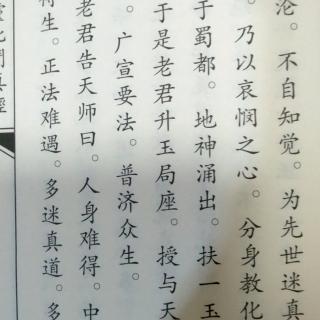 沦。不自知觉。为先世迷真
。乃以哀悯之心。分身教化
于蜀都。地神涌出。扶一玉
于是老君升玉局座。授与天
。广宣要法。普济众生。
老君告天师曰。人身难得。中
生。正法难遇。多迷真道。多